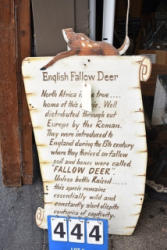 English Fallow Deer
North Africa is the true....
home of this deer, Well
distributed through out
Europe by the Roman.
They were introduced to
England during the 15th century
where they thrived on fallow
soil and hence were called
"FALLOW DEER".
Unless bottle Raised
this specie remains
essentially wild and
constantly alert despite
centuries of captivity.
444